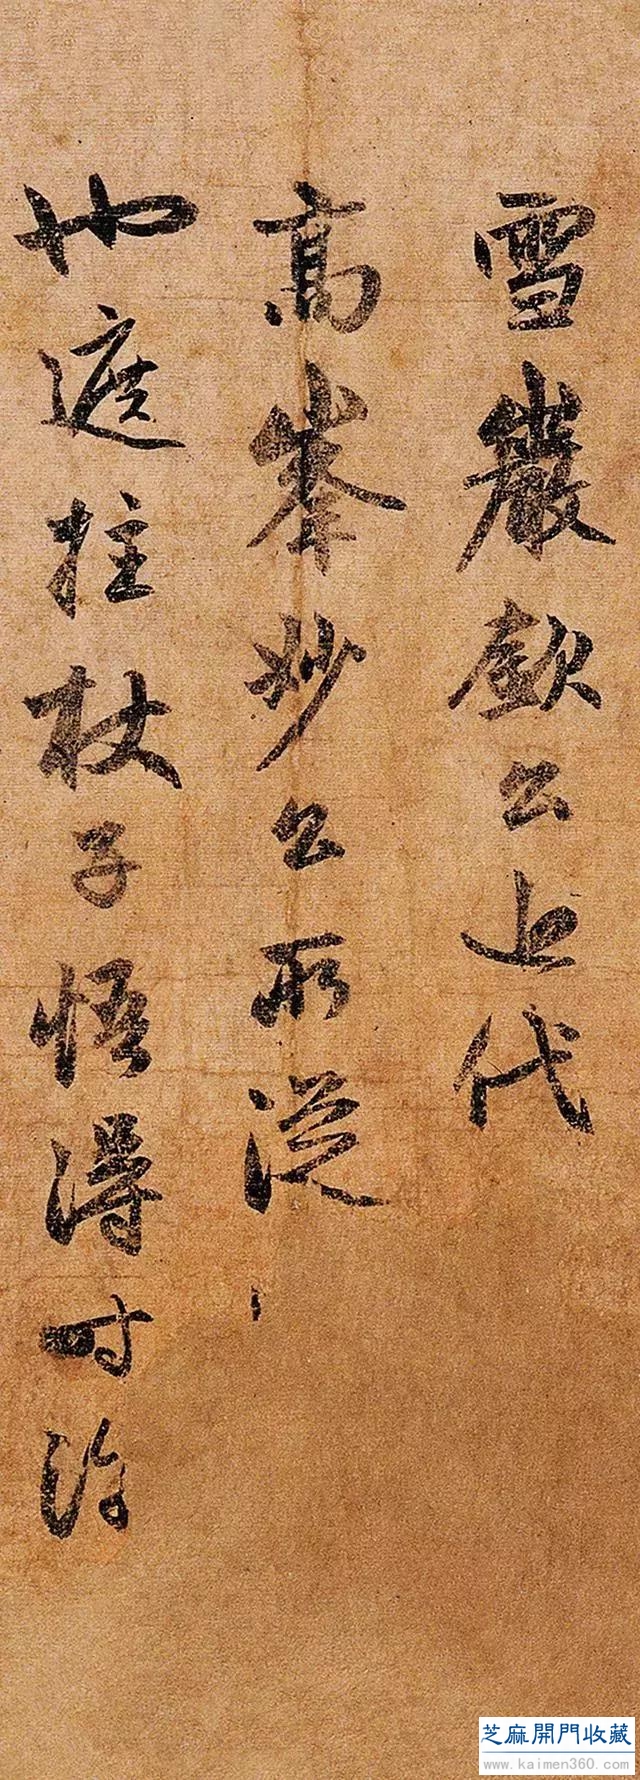 雪巖欽公近代
高峯妙公所從
也遮拄杖子悟得時
芝麻開門收藏
www.kaimen360.com